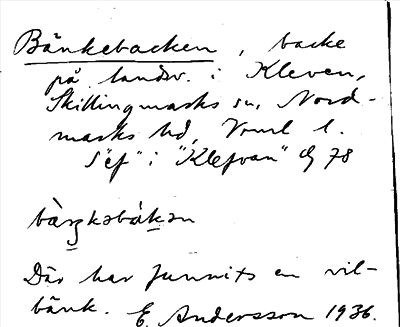 Bänkebacken, backe
på landsv. i Kleven,
Skillingmarks sn, Nord-
marks hd, Vrml l.
S "ef" i "Klefvan" Gg 78
Där har funnits en vil-
bänk. E. Andersson 1936.